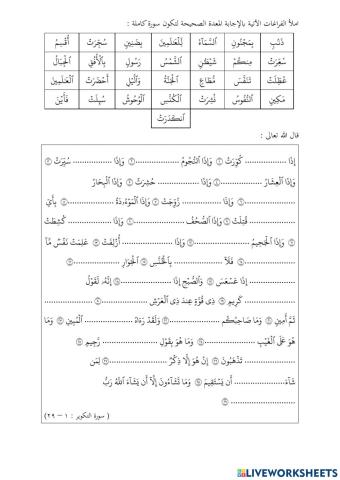 املأ الفراغات الآتية بالإجابة المعدة الصحيحة لتكون سورة كاملة :
ذَنۢبٖ بِمَجۡنُونٖ ٱلسَّمَآءُ لِّلۡعَٰلَمِينَ بِضَنِينٖ سُجِّرَتۡ أُقۡسِمُ
سُعِّرَتۡ مِنكُمۡ شَيۡطَٰنٖ ٱلشَّمۡسُ رَسُولٖ بِٱلۡأُفُقِ ٱلۡجِبَالُ
عُطِّلَتۡ تَنَفَّسَ مُّطَاعٖ ٱلۡجَنَّةُ وَٱلَّيۡلِ أَحۡضَرَتۡ ٱلۡعَٰلَمِينَ
مَكِينٖ ٱلنُّفُوسُ نُشِرَتۡ ٱلۡكُنَّسِ ٱلۡوُحُوشُ سُئِلَتۡ فَأَيۡنَ
ٱنكَدَرَتۡ
قال الله تعالى :
إِذَا .................. كُوِّرَتۡ ① وَإِذَا ٱلنُّجُومُ .................. ② وَإِذَا .................. سُيِّرَتۡ ③
وَإِذَا ٱلۡعِشَارُ .................. ④ وَإِذَا .................. حُشِرَتۡ ⑤ وَإِذَا ٱلۡبِحَارُ
.................. ⑥ وَإِذَا .................. زُوِّجَتۡ ⑦ وَإِذَا ٱلۡمَوۡءُۥدَةُ .................. ⑧ بِأَيِّ
.................. قُتِلَتۡ ⑨ وَإِذَا ٱلصُّحُفُ .................. ⑩ وَإِذَا .................. كُشِطَتۡ
⑪ وَإِذَا ٱلۡجَحِيمُ .................. ⑫ وَإِذَا .................. أُزۡلِفَتۡ ⑬ عَلِمَتۡ نَفۡسٞ مَّآ
.................. ⑭ فَلَآ .................. بِٱلۡخُنَّسِ ⑮ ٱلۡجَوَارِ .................. ⑯
.................. إِذَا عَسۡعَسَ ⑰ وَٱلصُّبۡحِ إِذَا .................. ⑱ إِنَّهُۥ لَقَوۡلُ
.................. كَرِيمٖ ⑲ ذِي قُوَّةٍ عِندَ ذِي ٱلۡعَرۡشِ .................. ⑳ ..................
ثَمَّ أَمِينٖ ㉑ وَمَا صَاحِبُكُم .................. ㉒ وَلَقَدۡ رَءَاهُ .................. ٱلۡمُبِينِ ㉓ وَمَا
هُوَ عَلَى ٱلۡغَيۡبِ .................. ㉔ وَمَا هُوَ بِقَوۡلِ .................. رَّجِيمٖ ㉕
.................. تَذۡهَبُونَ ㉖ إِنۡ هُوَ إِلَّا ذِكۡرٞ .................. ㉗ لِمَن
شَآءَ .................. أَن يَسۡتَقِيمَ ㉘ وَمَا تَشَآءُونَ إِلَّآ أَن يَشَآءَ ٱللَّهُ رَبُّ
.................. ㉙
( سورة التكوير : ١ – ٢٩ )
LIVEWORKSHEETS